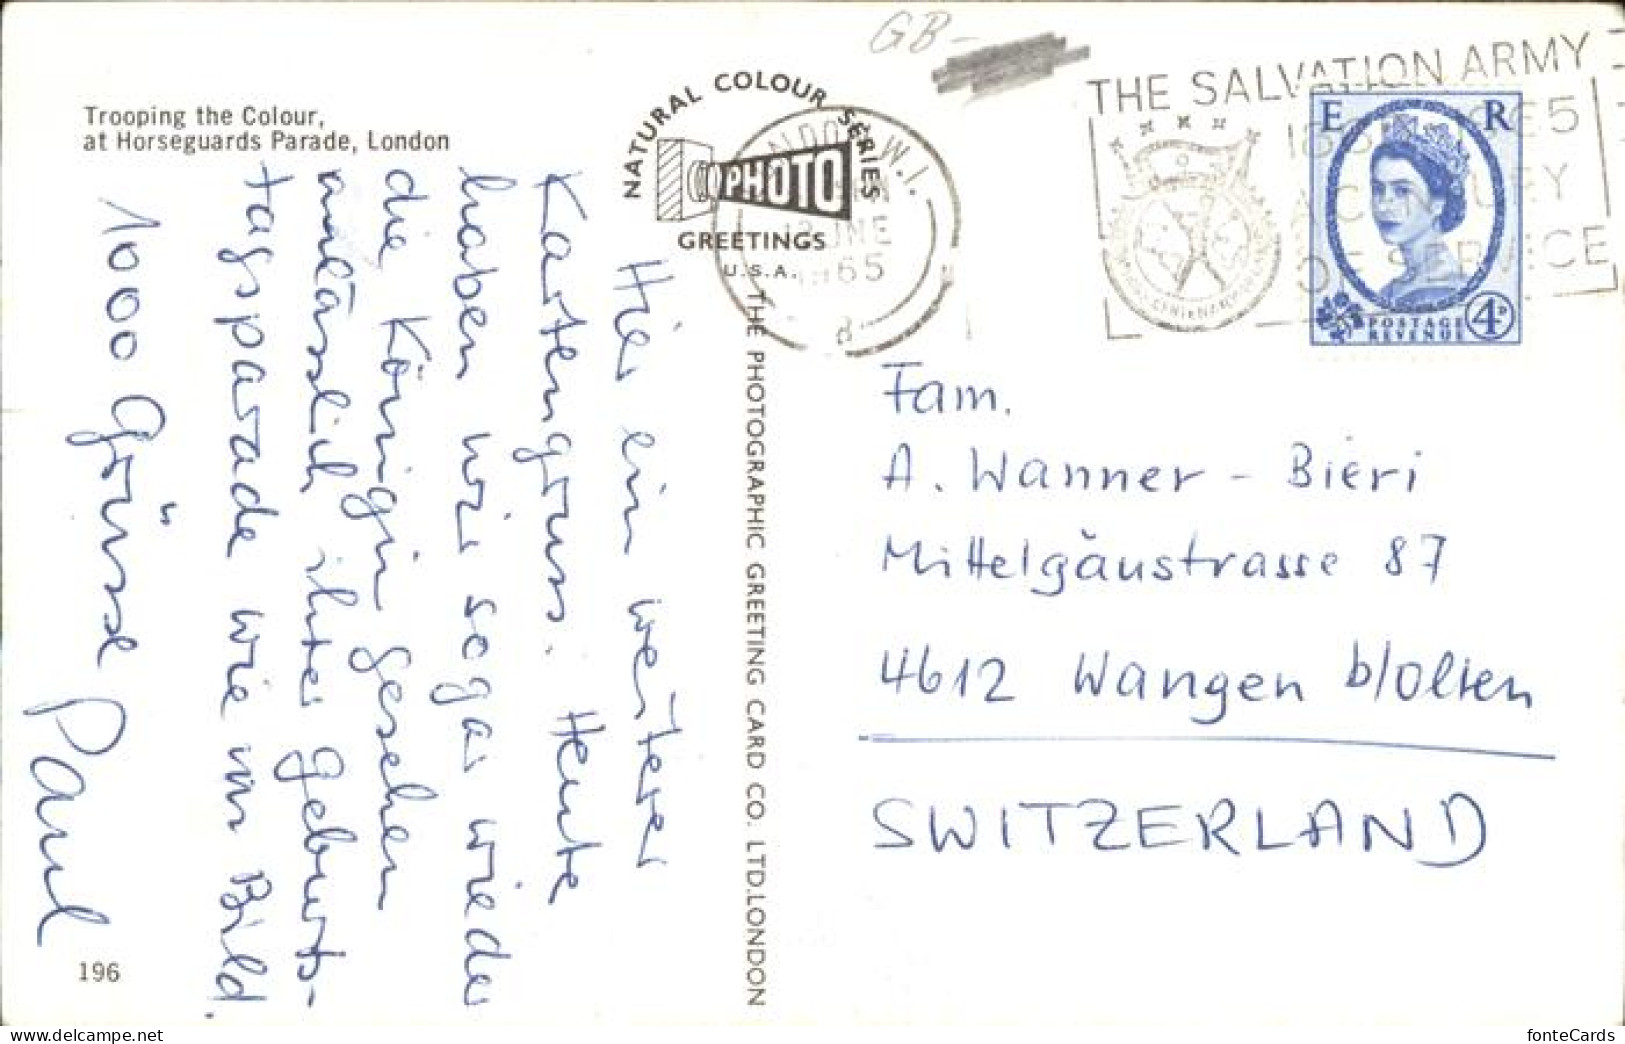 GB-
THE SALVATION ARMY
E R
POSTAGE
REVENUE
4D
Trooping the Colour,
at Horseguards Parade, London
NATURAL COLOUR SERIES
PHOTO
GREETINGS
U.S.A.
W.1.
JNE
1965
THE PHOTOGRAPHIC GREETING CARD CO. LTD. LONDON
Hier ein weiterer
Kartengruss. Heute
haben wir sogar wieder
die Königin gesehen
anlässlich ihrer Geburts-
tagsparade wie im Bild.
1000 Grüsse
Paul
Fam.
A. Wanner - Bieri
Mittelgäustrasse 87
4612 Wangen b/Olten
SWITZERLAND
196
www.delcampe.net
fonteCards